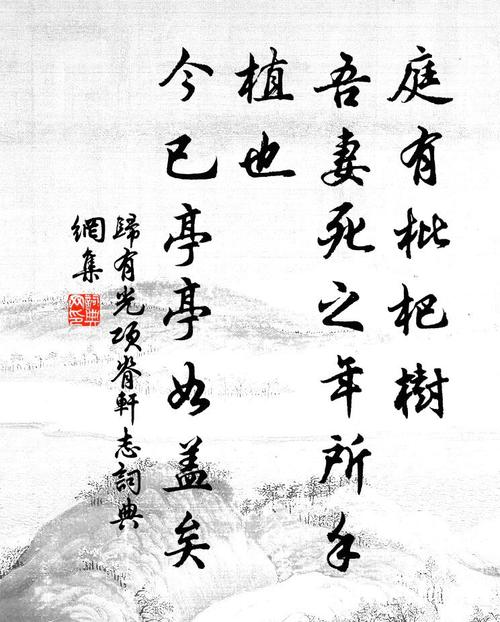 庭有枇杷樹
吾妻死之年所手
植也
今已亭亭如盖矣
歸有光項脊軒志詞典
網集